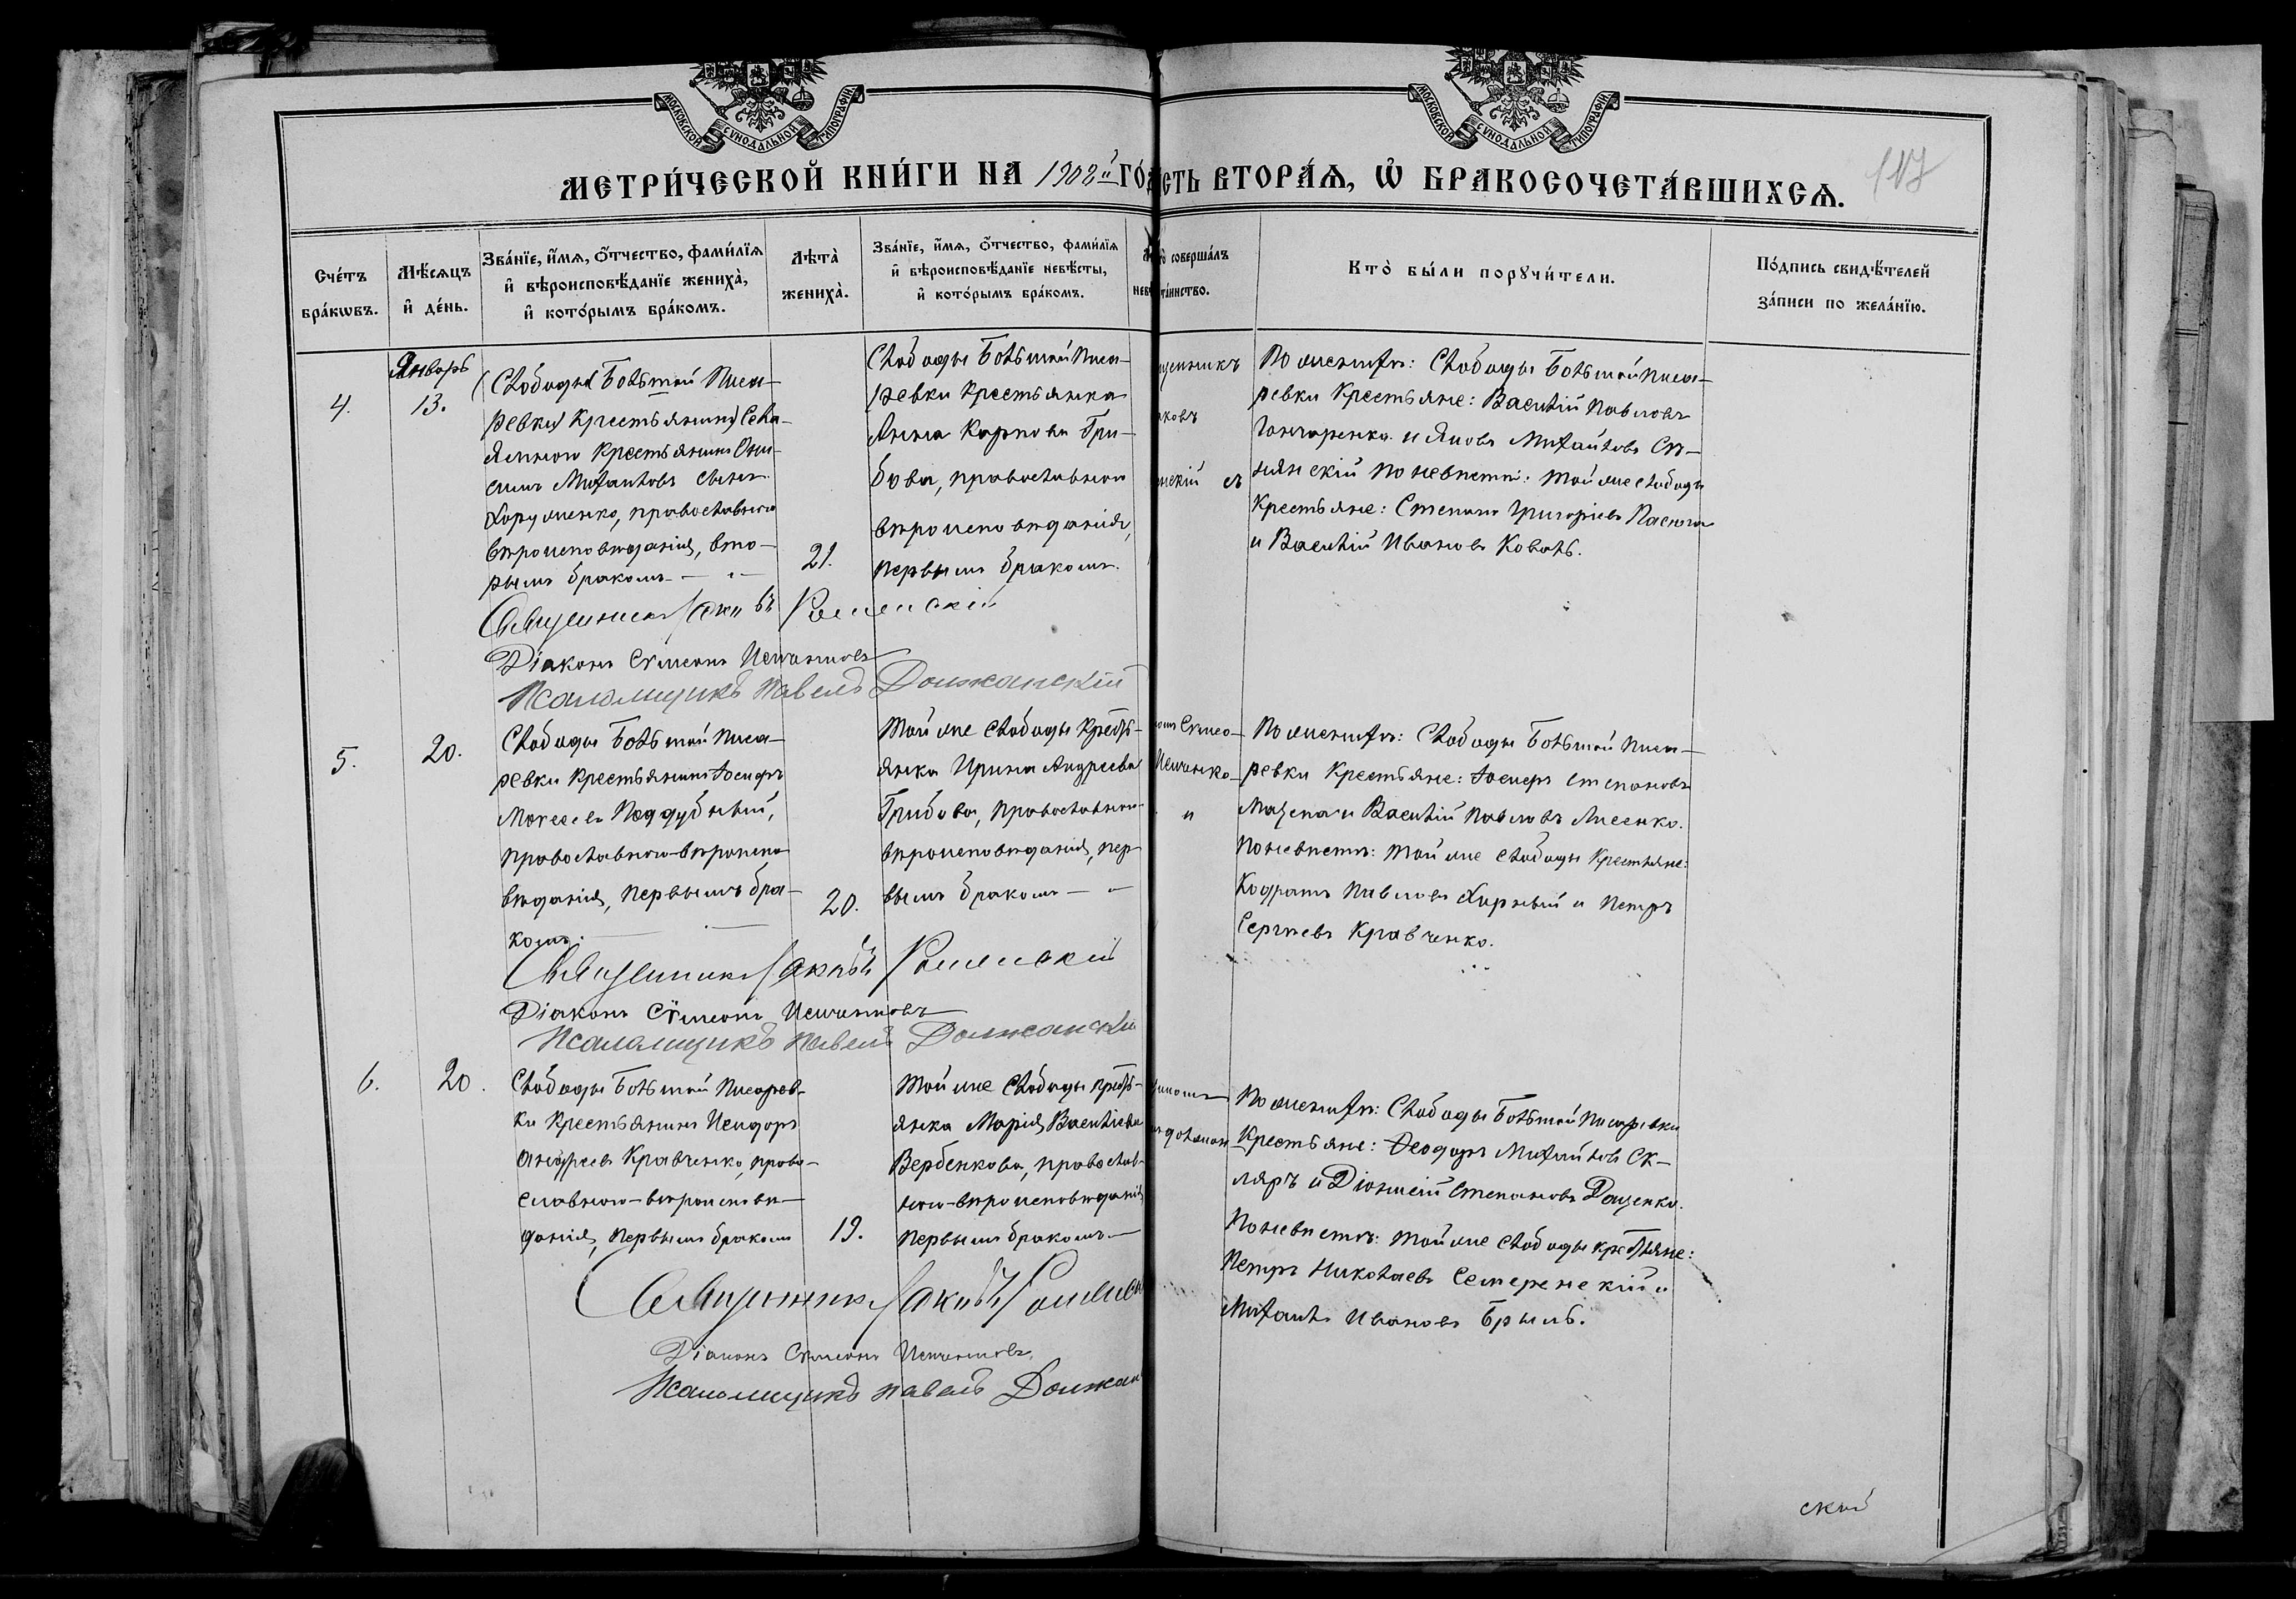 МОСКОВСКОЙ СѴНОДАЛЬНОЙ ТИПОГРАФІИ
МОСКОВСКОЙ СѴНОДАЛЬНОЙ ТИПОГРАФІИ
МЕТРИ́ЧЕСКОЙ КНИ́ГИ НА 1908й ГО́
СТЬ ВТОРА́Ѧ, Ѽ БРАКОСОЧЕТА́ВШИХСѦ.
117
Сче́тъ
бра́кѡвъ.
Мѣ́сѧцъ
и҆ де́нь.
Зва́нїе, и҆́мѧ, ѻ҆́тчество, фами́лїѧ
и҆ вѣроисповѣ́данїе жениха̀,
и҆ кото́рымъ бра́комъ.
Лѣта̀
жениха̀.
Зва́нїе, и҆́мѧ, ѻ҆́тчество, фами́лїѧ
и҆ вѣроисповѣ́данїе невѣ́сты,
и҆ кото́рымъ бра́комъ.
соверша́лъ
та́инство.
Кто̀ бы́ли порꙋчи́тели.
По́дпись свидѣ́телей
за́писи по жела́нїю.
4.
Январь
13.
Слободы Большой Писа-
ревки Крестьянинъ Села-
Крестьянинъ Они-
симъ Михаиловъ сынъ
Хоруженко, православнаго
вѣроисповѣданія, вто-
рымъ бракомъ — " —
21.
Слободы Большой Писа-
ревки Крестьянка
Анна Карпова Гри-
бова, православнаго
вѣроисповѣданія,
первымъ бракомъ.
щенникъ
аковъ
нскій съ
По женихѣ: Слободы Большой Писа-
ревки Крестьяне: Василій Павловъ
Гончаренко и Яковъ Михайловъ Си-
нянскій по невѣстѣ: той же слободы
Крестьяне: Степанъ Григорьевъ Пасюга
и Василій Ивановъ Коваль.
Священникъ Іаковъ Роменскій
Діаконъ Сѵмеонъ Исиченковъ
Псаломщикъ Павелъ Должанскій
5.
20.
Слободы Большой Писа-
ревки Крестьянинъ Іосифъ
Моисеевъ Поддубный,
православнаго вѣроиспо-
вѣданія, первымъ бра-
комъ. —
20.
Той же слободы Крестьянка Ирина Андреева
Грибова, православнаго
вѣроисповѣданія, пер-
вымъ бракомъ — " —
омъ Сѵмео-
Исиченко-
"
По женихѣ: Слободы Большой Писа-
ревки Крестьяне: Іосифъ Степановъ
Мацепа и Василій Павловъ Лисенко.
По невѣстѣ: той же слободы Крестьяне:
Кодратъ Павловъ Хирный и Петръ
Сергѣевъ Кравченко.
Священникъ Іаковъ Роменскій
Діаконъ Сѵмеонъ Исиченковъ
Псаломщикъ Павелъ Должанскій
6.
20.
Слободы Большой Писарев-
ки Крестьянинъ Исидоръ
Андреевъ Кравченко, право-
славнаго вѣроисповѣ-
данія, первымъ бракомъ
19.
Той же слободы кресть-
янка Марія Василіева
Вербенкова, православ-
наго вѣроисповѣданія
первымъ бракомъ. —
По женихѣ: Слободы Большой Писаревки
Крестьяне: Ѳеодоръ Михайловъ Ск-
ляръ и Діонисій Степановъ Даценко.
По невѣстѣ: той же слободы крестьяне:
Петръ Николаевъ Семеренскій и
Михаилъ Ивановъ Брыль.
Священникъ Іаковъ Роменс
Діаконъ Сѵмеонъ Исиченковъ
Псаломщикъ Павелъ Должан
скій